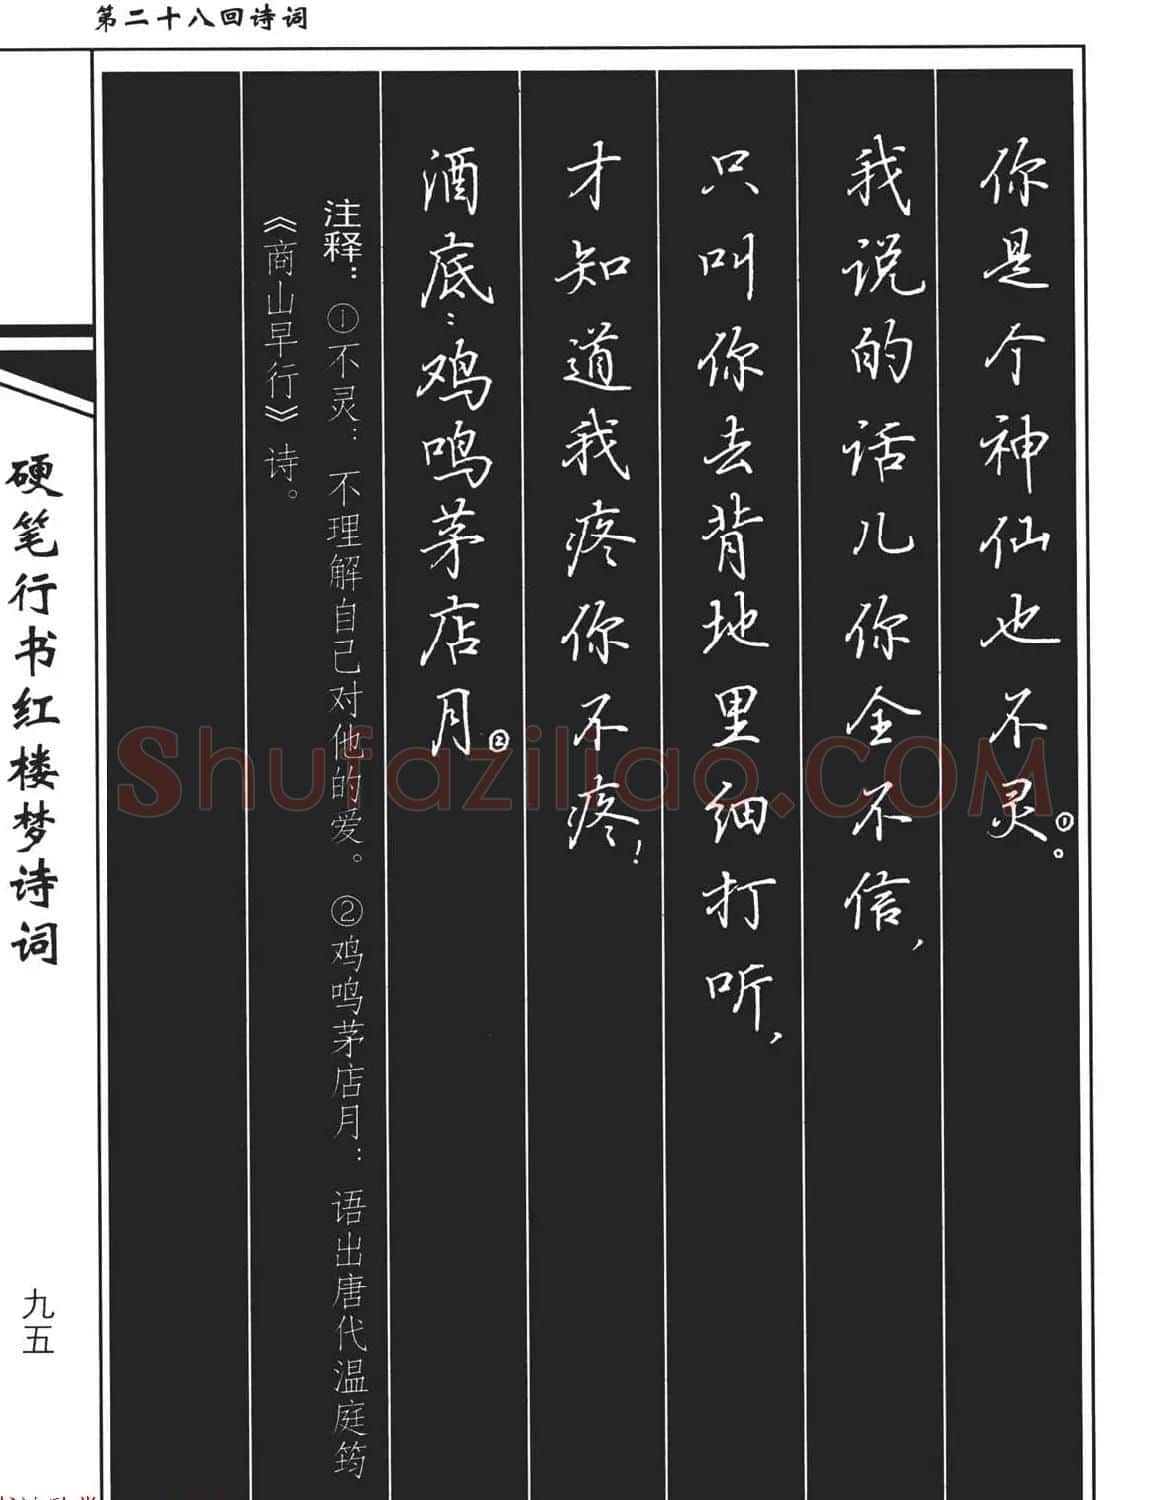 第二十八回诗词
你是个神仙也不灵①。
我说的话儿你全不信，
只叫你去背地里细打听，
才知道我疼你不疼！
酒底：鸡鸣茅店月②
注释：①不灵：不理解自己对他的爱。②鸡鸣茅店月：语出唐代温庭筠
《商山早行》诗。
硬笔行书红楼梦诗词
九五
Shufaziliao.COM